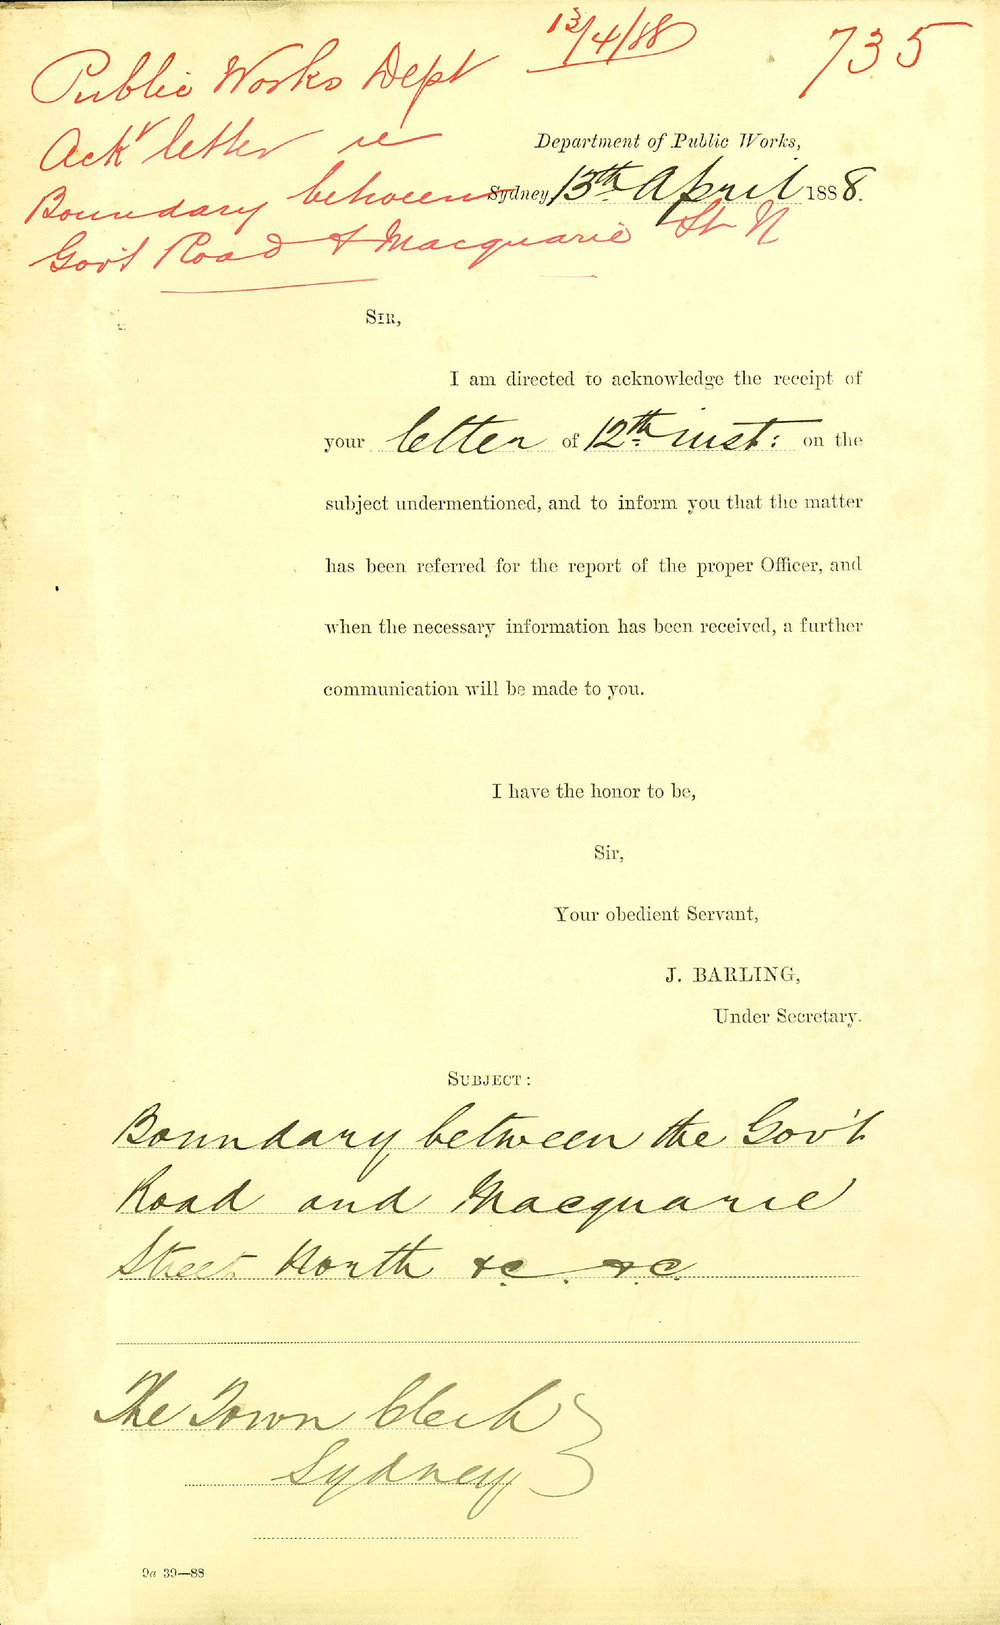 13/4/88
735
Public Works Dept
Ackr letter re
Boundary between
Gov't Road & Macquarie St N
Department of Public Works,
Sydney, 13th April 1888.
SIR,
I am directed to acknowledge the receipt of
your letter of 12th inst: on the
subject undermentioned, and to inform you that the matter
has been referred for the report of the proper Officer, and
when the necessary information has been received, a further
communication will be made to you.
I have the honor to be,
Sir,
Your obedient Servant,
J. BARLING,
Under Secretary.
SUBJECT:
Boundary between the Gov't
Road and Macquarie
Street North &c. &c.
The Town Clerk
Sydney
9a 39—88